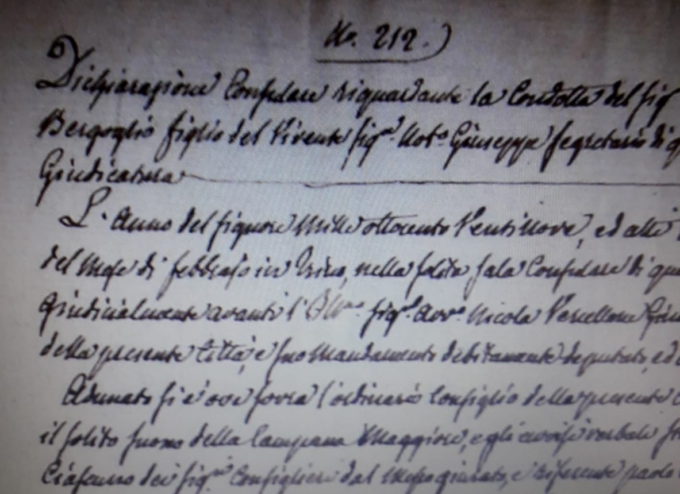 No. 212.)
Dichiarazione Consulare riguardante la Condotta del sig
Bergoglio figlio del Vivente sigr. Noto. Giuseppe segretario di q
Giudicatura
L'Anno del signore Mille ottocento Ventinove, ed alli
del Mese di febbrajo in Trino, nella solita sala Consulare di que
giudicialmente avanti l'Illmo. sigr. Avvo. Nicola Vercellone Giu
della presente Città, e suo Mandamento debitamente deputato, ed
Adunato si è ove sovra l'ordinario Consiglio della presente
il solito suono della Campana Maggiore, e gli avvisi verbali
Ciascuno dei sigri Consiglieri dal Messo giurato, e riferente